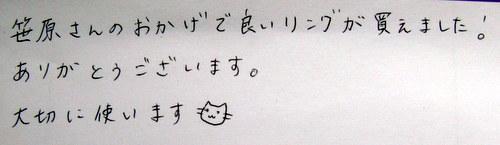 笹原さんのおかげで良いリングが買えました!
ありがとうございます。
大切に使います